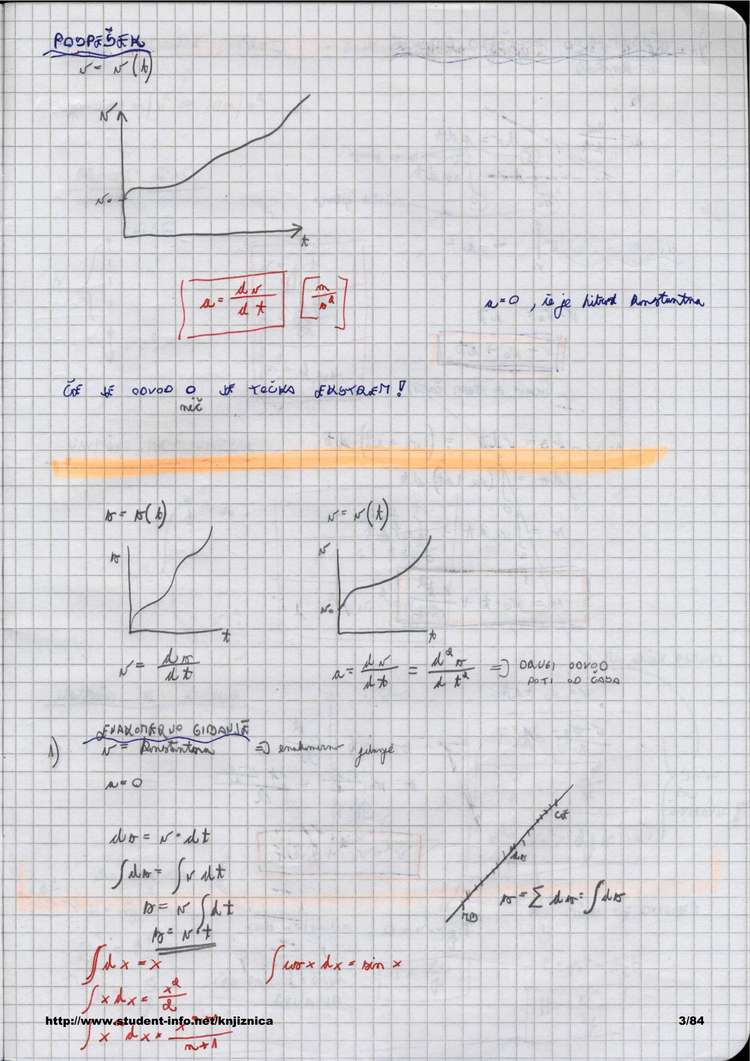 POSPEŠEK
v = v(t)
v
v₀
t
a = dv/dt [m/s²]
a=0, če je hitrost konstantna
ČE JE ODVOD 0 JE TOČKA EKSTREM!
nič
s = s(t)
v = v(t)
s
t
v
v₀
t
v = ds/dt
a = dv/dt = d²s/dt² => DRUGI ODVOD
POTI OD ČASA
1) ENAKOMERNO GIBANJE
v = konstantna => enakomerno gibanje
a = 0
ds = v · dt
∫ds = ∫v dt
s = v ∫dt
s = v · t
ds
s = Σ ds = ∫ds
∫dx = x
∫cos x dx = sin x
∫x dx = x²/2
http://www.student-info.net/knjiznica
3/84